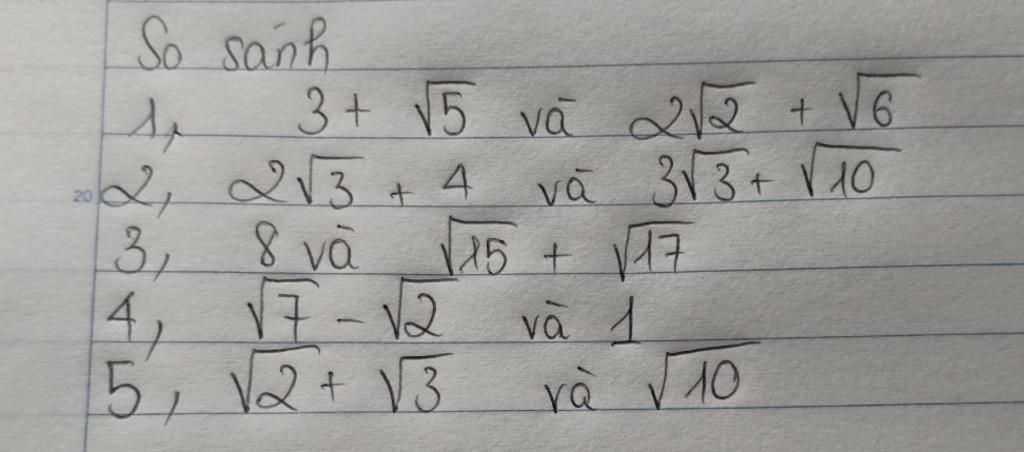 So sánh
1, 3 + √5 và 2√2 + √6
2, 2√3 + 4 và 3√3 + √10
3, 8 và √15 + √17
4, √7 - √2 và 1
5, √2 + √3 và √10
20